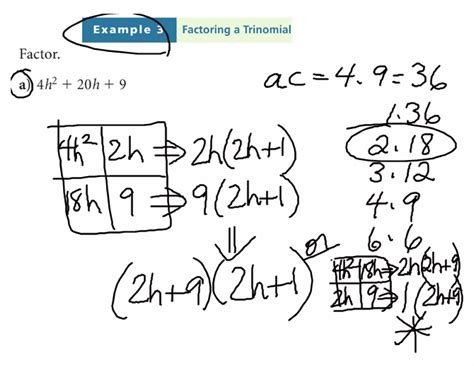 Example 3 Factoring a Trinomial
Factor.
a) 4h² + 20h + 9
ac = 4.9 = 36
1.36
2.18
3.12
4.9
6.6
4h² 2h ⇒ 2h(2h+1)
18h 9 ⇒ 9(2h+1)
⇓
(2h+9)(2h+1)
or
4h² 18h ⇒ 2h(2h+9)
2h 9 ⇒ 1(2h+9)